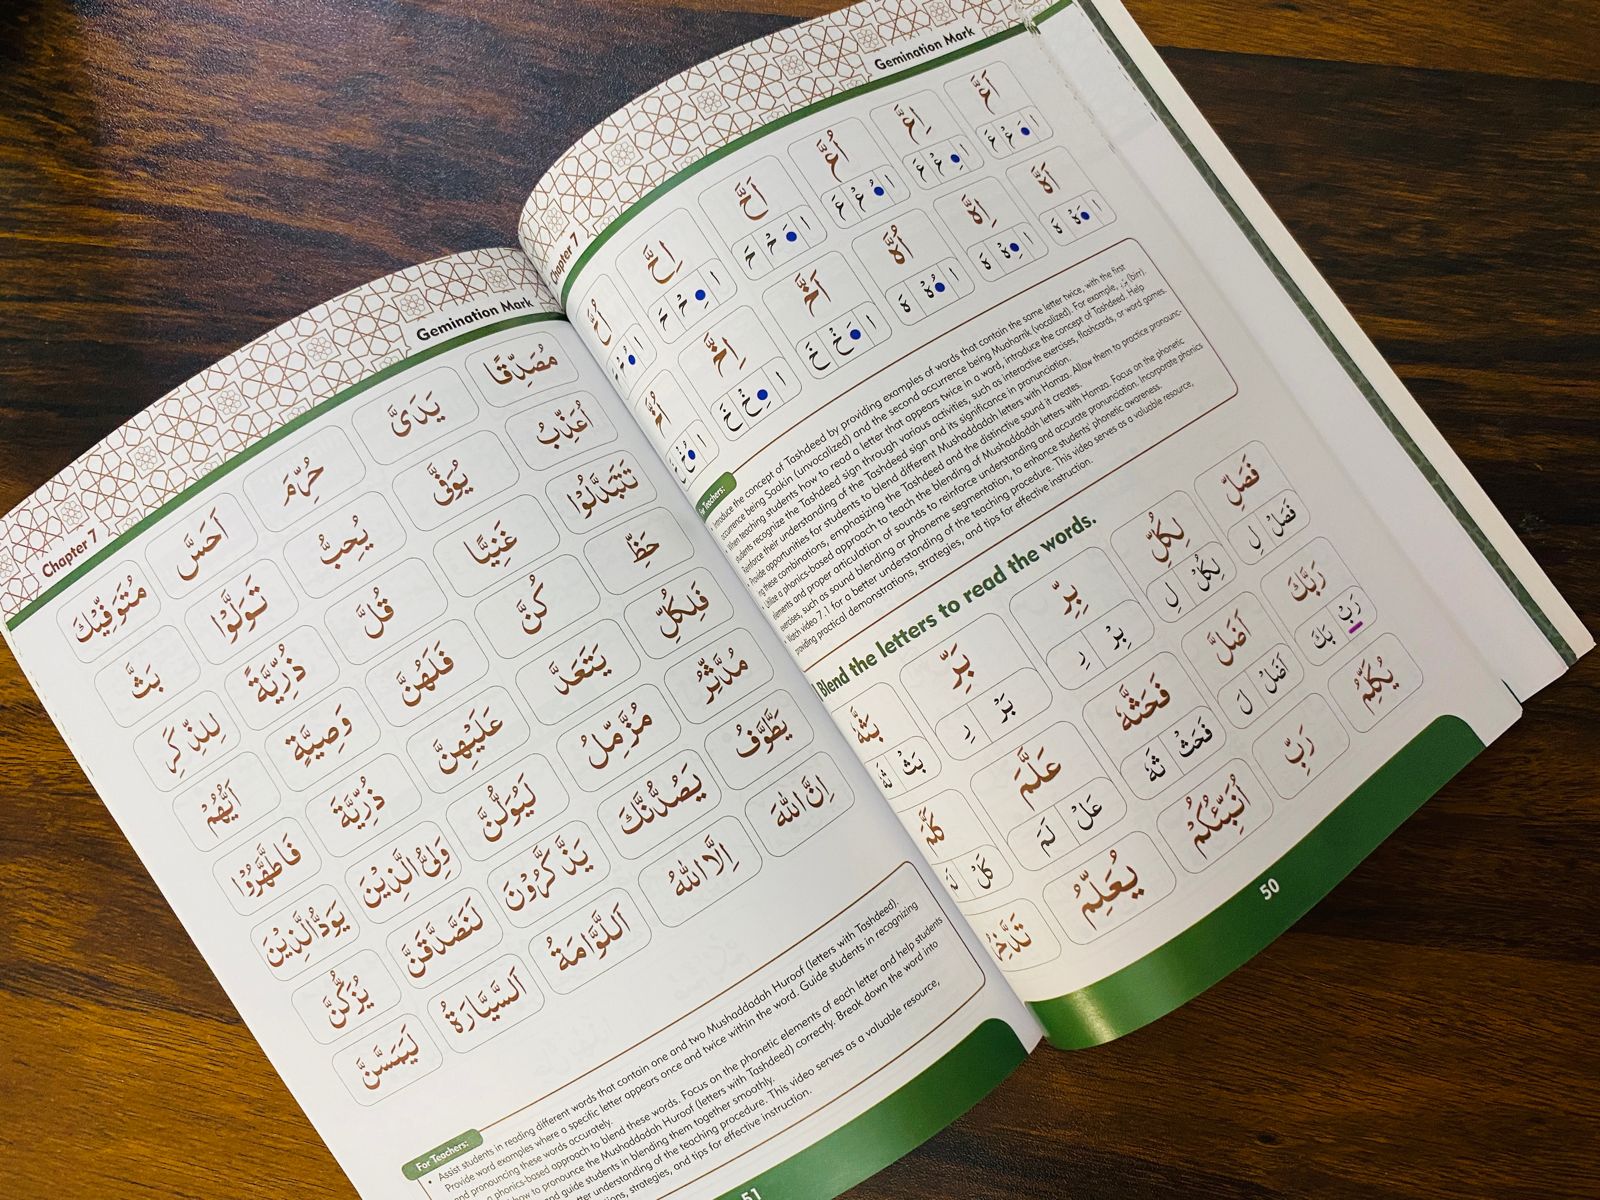 Chapter 7
Gemination Mark
اَعَّ اِعَّ اُعَّ اَحَّ اِحَّ
ا عْ عَ ا عْ عَ ا عْ عَ ا حْ حَ ا حْ حَ
اَهَّ اِهَّ اُهَّ اَخَّ اِخَّ
ا هْ هَ ا هْ هَ ا هْ هَ ا خْ خَ ا خْ خَ
For Teachers:
introduce the concept of Tashdeed by providing examples of words that contain the same letter twice, with the first
occurrence being Saakin (unvocalized) and the second occurrence being Muaharrik (vocalized). For example, (birr).
When teaching students how to read a letter that appears twice in a word, introduce the concept of Tashdeed. Help
students recognize the Tashdeed sign through various activities, such as interactive exercises, flashcards, or word games.
Reinforce their understanding of the Tashdeed sign and its significance in pronunciation.
Provide opportunities for students to blend different Mushaddadah letters with Hamza. Allow them to practice pronounc-
ing these combinations, emphasizing the Tashdeed and the distinctive sound it creates.
Utilize a phonics-based approach to teach the blending of Mushaddadah letters with Hamza. Focus on the phonetic
elements and proper articulation of sounds to reinforce understanding and accurate pronunciation. Incorporate phonics
exercises, such as sound blending or phoneme segmentation, to enhance students' phonetic awareness.
Watch video 7.1 for a better understanding of the teaching procedure. This video serves as a valuable resource,
providing practical demonstrations, strategies, and tips for effective instruction.
Blend the letters to read the words.
فَصَلِّ لِكُلِّ بِرِّ بَرِّ بَثَّهٗ
فَصَلْ لِ لِكُلْ لِ بِرْ رِ بَرْ رِ بَثْ ثَهٗ
رَبُّكَ اَضَلَّ فَحَثَّهٗ عَلَّمَ
رَبْ بُكَ اَضَلْ لَ فَحَثْ ثَهٗ عَلْ لَمَ كَلْ
يُكَلِّمُ رَبِّ اُنَبِّئُكُمْ يُعَلِّمُ
50
Chapter 7
Gemination Mark
مُصَدِّقًا يَدَىَّ حُرِّمَ اَحَسَّ مُتَوَفِّيْكَ
اُعَذِّبُ يُوَفَّى يُحِبُّ تَوَلَّوْا بَثَّ
تَتَبَدَّلُوْا غَنِيًّا قُلَّ ذُرِّيَّةً لِلذِّكْرِ
حَظِّ كُنَّ فَلَهُنَّ وَصِيَّةٍ اَيُّهُمْ
فَلِكُلٍّ يَتَعَدَّ عَلَيْهِنَّ ذُرِّيَّةً فَاطَّهَّرُوْا
مُدَّثِّرُ مُزَّمِّلُ لَيُوَلُّنَّ وَلِىُّ الَّذِيْنَ يَوَدُّ الَّذِيْنَ
يَطَّوَّفُ يَصُدُّنَّكَ يَذَّكَّرُوْنَ لَنَصَّدَّقَنَّ يُزَكُّنَّ
اِنَّ اللّٰهَ اِلَّا اللّٰهُ اَللَّوَّامَةُ اَلسَّيَّارَةُ لَيَمَسَّنَّ
For Teachers:
• Assist students in reading different words that contain one and two Mushaddadah Huroof (letters with Tashdeed).
Provide word examples where a specific letter appears once and twice within the word. Guide students in recognizing
and pronouncing these words accurately.
a phonics-based approach to blend these words. Focus on the phonetic elements of each letter and help students
how to pronounce the Mushaddadah Huroof (letters with Tashdeed) correctly. Break down the word into
and guide students in blending them together smoothly.
understanding of the teaching procedure. This video serves as a valuable resource,
strategies, and tips for effective instruction.
51